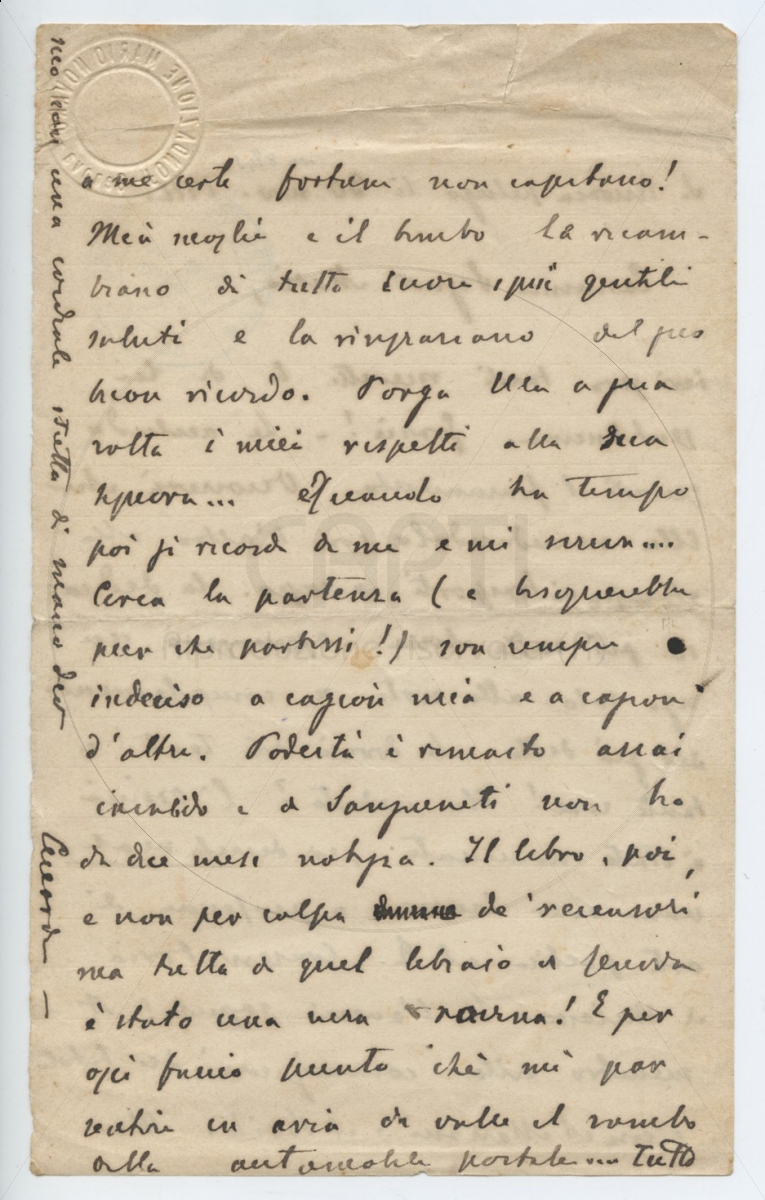 a me certe fortune non capitano!
Mia moglie e il bimbo La ricam-
biano di tutto cuore i più gentili
saluti e la ringraziano del suo
buon ricordo. Porga Ella a sua
volta i miei rispetti alla sua
signora... e quando ha tempo
poi si ricordi di me e mi scriva....
Circa la partenza (e bisognerebbe
pur che partissi!) son sempre
indeciso a cagion mia e a cagion
d'altri. Podestà è rimasto assai
e di Sanguineti non ho
da due mesi notizia. Il libro, poi,
e non per colpa de' recensori
ma tutta di quel libraio di Genova
è stato una vera rovina! E per
oggi faccio punto chè mi par
sentire in aria da valle il rombo
della automobile postale... Tutto
con una cordiale stretta di mano dal